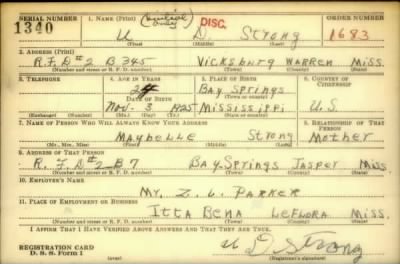 SERIAL NUMBER 1. NAME (Print) (initial only) DISC. ORDER NUMBER
1340 U D. STRONG 1683
(First) (Middle) (Last)
2. ADDRESS (Print)
R.F.D#2 B345 VICKSBURG WARREN MISS.
(Number and street or R. F. D. number) (Town) (County) (State)
3. TELEPHONE 4. AGE IN YEARS 5. PLACE OF BIRTH 6. COUNTRY OF CITIZENSHIP
BAY SPRINGS
DATE OF BIRTH (Town or county)
NOV. 3 1925 MISSISSIPPI U.S.
(Exchange) (Number) (Mo.) (Day) (Yr.) (State or country)
7. NAME OF PERSON WHO WILL ALWAYS KNOW YOUR ADDRESS 8. RELATIONSHIP OF THAT PERSON
MAYBELLE STRONG MOTHER
(Mr., Mrs., Miss) (First) (Middle) (Last)
9. ADDRESS OF THAT PERSON
R.F.D#2 B7 BAY SPRINGS JASPER MISS
(Number and street or R. F. D. number) (Town) (County) (State)
10. EMPLOYER'S NAME
MR. Z. L. PARKER
11. PLACE OF EMPLOYMENT OR BUSINESS
ITTA BENA LEFLORA MISS.
(Number and street or R. F. D. number) (Town) (County) (State)
I AFFIRM THAT I HAVE VERIFIED ABOVE ANSWERS AND THAT THEY ARE TRUE.
REGISTRATION CARD U D. Strong
D. S. S. Form 1